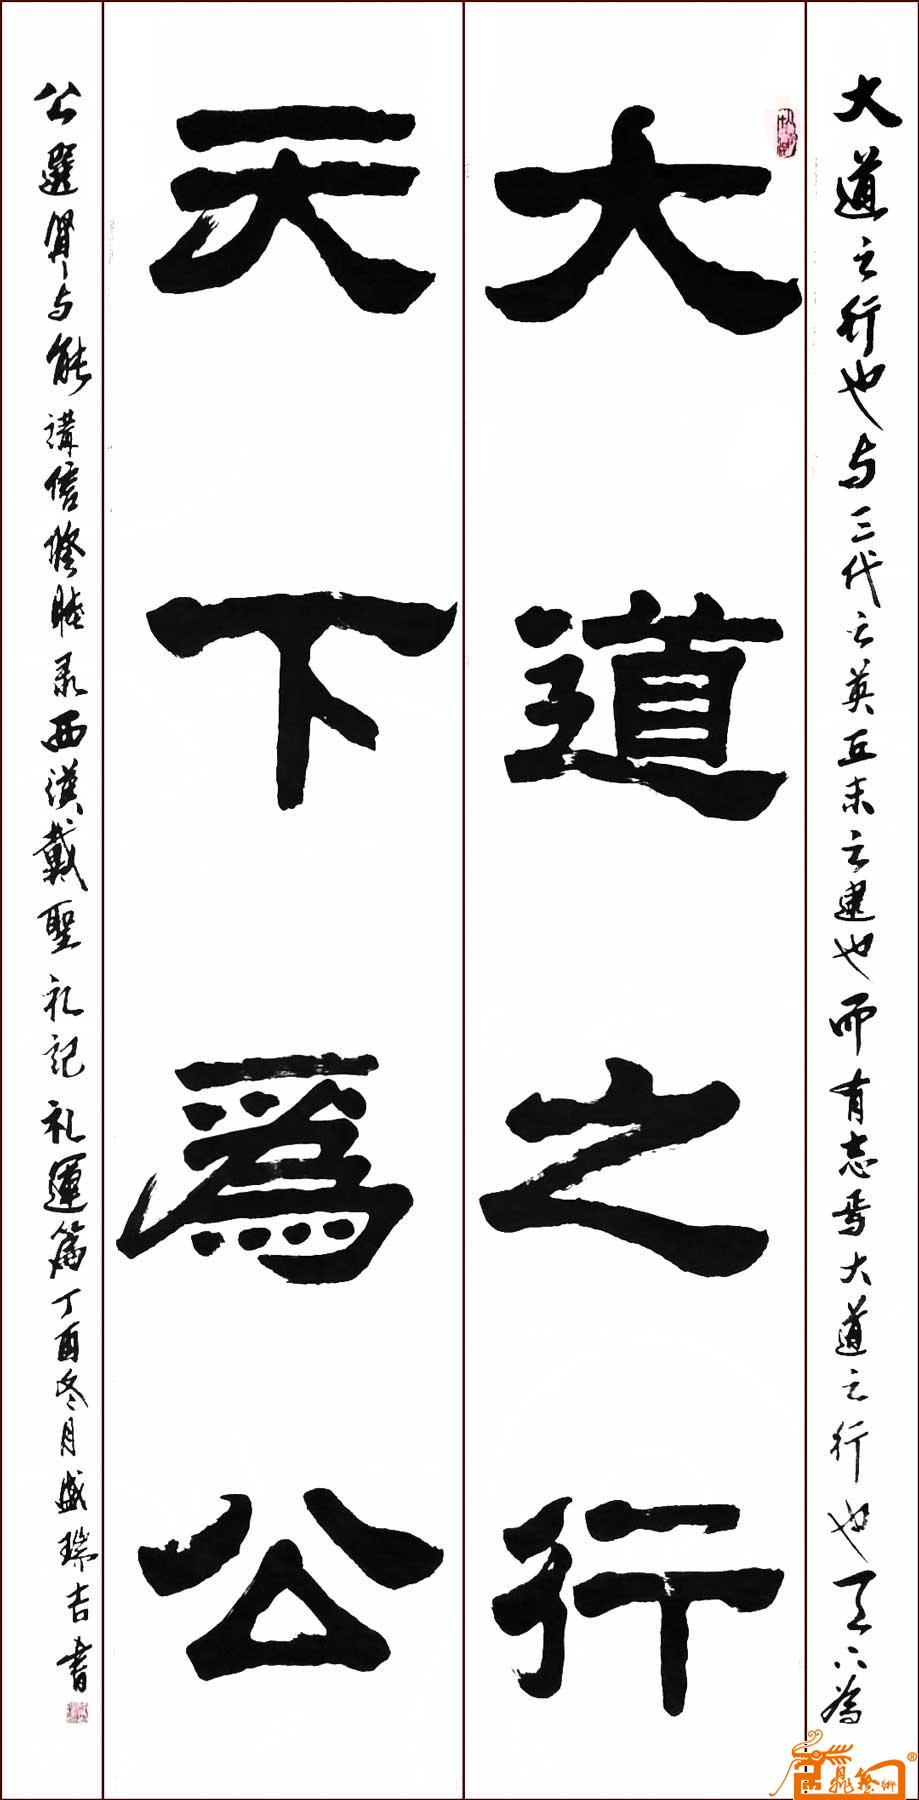 大道之行也与三代之英丘未之逮也而有志焉大道之行也天下為
大道之行
天下為公
公選賢与能講信修睦录西漢戴聖礼記礼運篇丁酉冬月盛瑞吉書